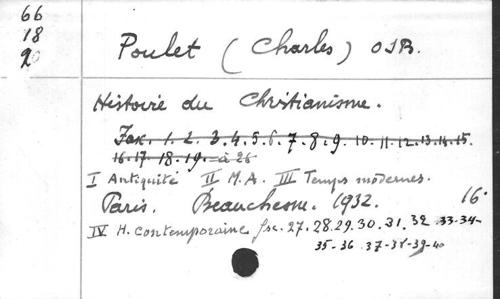 66
18
20
Poulet (Charles) OSB.
Histoire du Christianisme.
Fax. 1. 2. 3. 4. 5. 6. 7. 8. 9. 10. 11. 12. 13. 14. 15.
16. 17. 18. 19. à 26
I Antiquité II M.A. III Temps modernes.
Paris. Beauchesne. 1932. 16°
IV H. contemporaine fsc. 27. 28. 29. 30. 31. 32 33-34-
35-36 37-38-39-40